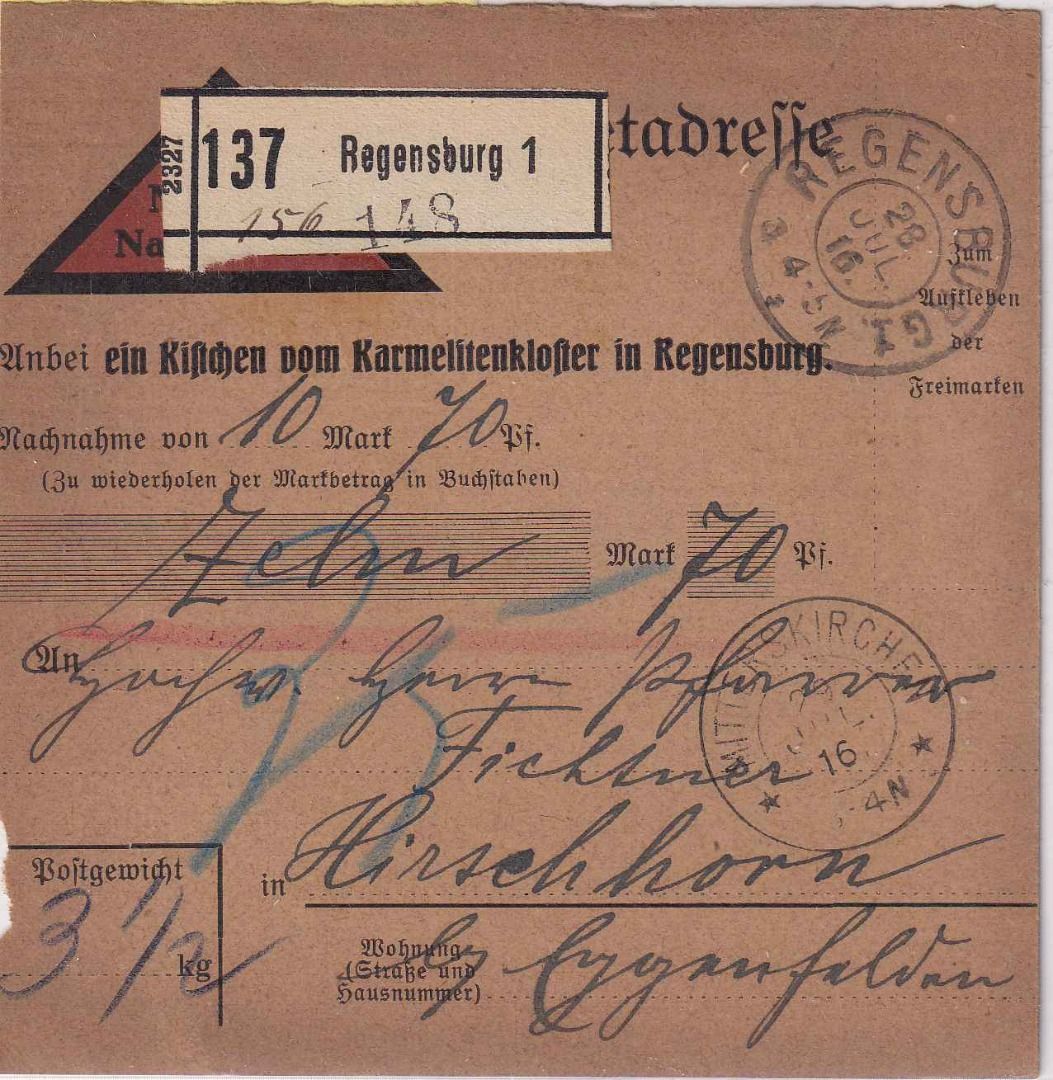 2327
137 Regensburg 1
156 148
Na
etadresse
REGENSBURG 1.
28
JUL
16.
3 4-5N
Zum
Aufkleben
der
Freimarken
Anbei ein Kistchen vom Karmelitenkloster in Regensburg.
Nachnahme von 10 Mark 70 Pf.
(Zu wiederholen der Markbetrag in Buchstaben)
Zehn Mark 70 Pf.
An Hochw. Herrn Pfarrer
Fichtner
MITTERSKIRCHEN
JUL
16
4N
Postgewicht
3 1/2 kg
in Hirschhorn
Wohnung
(Straße und
Hausnummer)
Eggenfelden